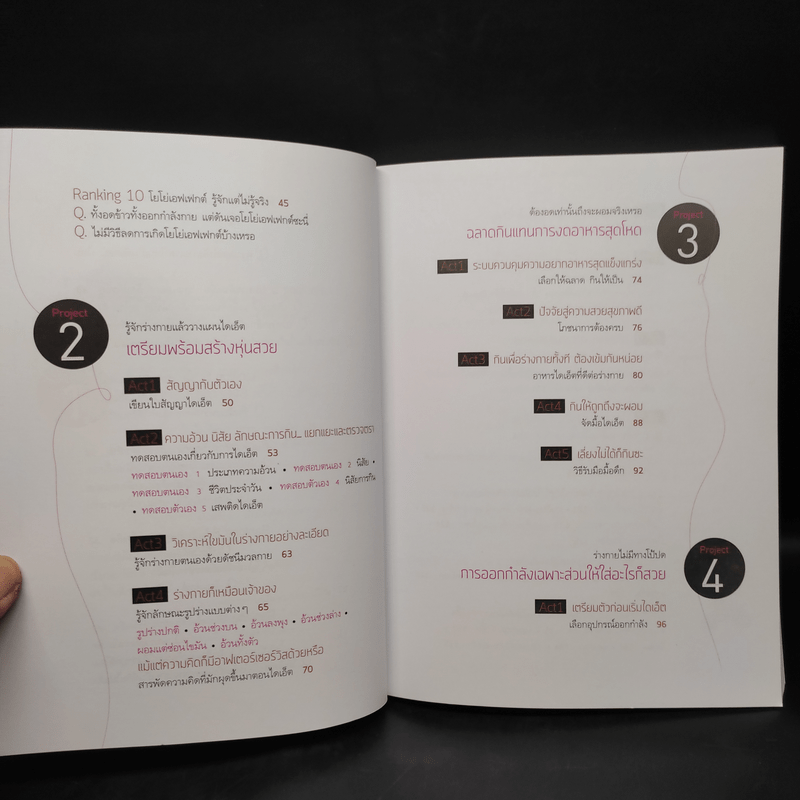 Ranking 10 โยโย่เอฟเฟกต์ รู้จักแต่ไม่รู้จริง 45
Q. ทั้งอดข้าวทั้งออกกำลังกาย แต่ดันเจอโยโย่เอฟเฟกต์ซะนี่
Q. ไม่มีวิธีลดการเกิดโยโย่เอฟเฟกต์บ้างเหรอ
Project
2
รู้จักร่างกายแล้ววางแผนไดเอ็ต
เตรียมพร้อมสร้างหุ่นสวย
Act1 สัญญากับตัวเอง
เขียนใบสัญญาไดเอ็ต 50
Act2 ความอ้วน นิสัย ลักษณะการกิน... แยกแยะและตรวจตรา
ทดสอบตนเองเกี่ยวกับการไดเอ็ต 53
ทดสอบตนเอง 1 ประเภทความอ้วน • ทดสอบตนเอง 2 นิสัย •
ทดสอบตนเอง 3 ชีวิตประจำวัน • ทดสอบตัวเอง 4 นิสัยการกิน
• ทดสอบตัวเอง 5 เสพติดไดเอ็ต
Act3 วิเคราะห์ไขมันในร่างกายอย่างละเอียด
รู้จักร่างกายตนเองด้วยดัชนีมวลกาย 63
Act4 ร่างกายก็เหมือนเจ้าของ
รู้จักลักษณะรูปร่างแบบต่างๆ 65
รูปร่างปกติ • อ้วนช่วงบน • อ้วนลงพุง • อ้วนช่วงล่าง •
ผอมแต่ซ่อนไขมัน • อ้วนทั้งตัว
แม้แต่ความคิดก็มีอาฟเตอร์เซอร์วิสด้วยหรือ
สารพัดความคิดที่มักผุดขึ้นมาตอนไดเอ็ต 70
ต้องอดเท่านั้นถึงจะผอมจริงเหรอ
ฉลาดกินแทนการงดอาหารสุดโหด
Project
3
Act1 ระบบควบคุมความอยากอาหารสุดแข็งแกร่ง
เลือกให้ฉลาด กินให้เป็น 74
Act2 ปัจจัยสู่ความสวยสุขภาพดี
โภชนาการต้องครบ 76
Act3 กินเพื่อร่างกายทั้งที ต้องเข้มกันหน่อย
อาหารไดเอ็ตที่ดีต่อร่างกาย 80
Act4 กินให้ถูกถึงจะผอม
จัดมื้อไดเอ็ต 88
Act5 เลี่ยงไม่ได้ก็กินซะ
วิธีรับมือมื้อดึก 92
ร่างกายไม่มีทางโป้ปด
การออกกำลังเฉพาะส่วนให้ใส่อะไรก็สวย
Project
4
Act1 เตรียมตัวก่อนเริ่มไดเอ็ต
เลือกอุปกรณ์ออกกำลัง 96